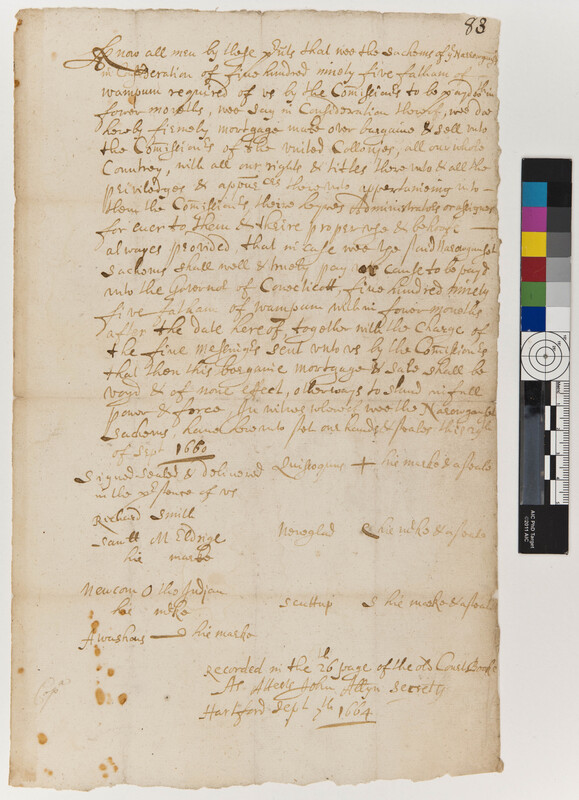 83
Know all men by these p'sents that wee the sachems of ye Narrogansett
in Consideration of fiue hundred ninety fiue fatham of
wampum required of vs by the Comissionrs to be payd within
fower moneths, wee say in Consideration thereof, wee doe
hereby firmely mortgage make over bargaine & sell vnto
the Comissionrs of the vnited Collinies, all our whole
Countrey, with all our rights & titles therevnto & all the
priviledges & appurces therevnto appertaineing vnto
them the Comissionrs theire heyres Administrators or assignes
for euer to them & theire proper vse & behoofe
alwayes provided that in case wee the said Narrogansett
Sachems shall well & truely pay or cause to be payd
vnto the Governor of Conecticott, fiue hundred ninety
fiue fatham of wampum within fower moneths
after the date hereof, together with the Charge of
the fiue messingrs sent vnto vs by the Comissionrs
that then this bargaine mortgage & sale shall be
voyd & of none effect, otherways to stand in full
power & force. In witnes whereof wee the Narrogansett
Sachems, haue herevnto set our hands & seales this 29th
of Sept 1660
Signed sealed & deliuered Quissoquus + his marke & a seale
in the presence of vs
Richard Smith
Samll M Eldrige Neneglud & his mrke & a seale
his marke
Newcom O the Indian
his mrke Scuttup S his marke & a seale
Awashous his marke
Recorded in the 26th page of the old Court Booke
As Attests John Allyn Secretry
Hartford Sept 7th 1664
Copa
AIC PhD Target
©2011 AIC